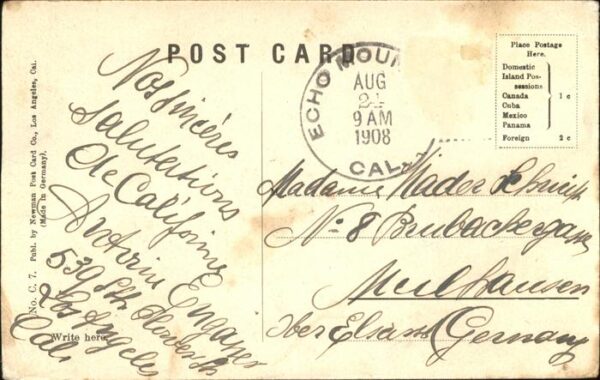 POST CARD
No. C. 7. Publ. by Newman Post Card Co., Los Angeles, Cal.
(Made in Germany).
Nos sincères
Salutations
de Californie
Engasser
539
Los Angeles
Cali
Write here.
ECHO MOUN
AUG
21
9 AM
1908
CAL.
Place Postage
Here.
Domestic
Island Pos-
sessions
Canada
Cuba
Mexico
Panama
1 c
Foreign 2 c
Madame Mader
No 8
Meulhausen
Ober Elsass (Germany